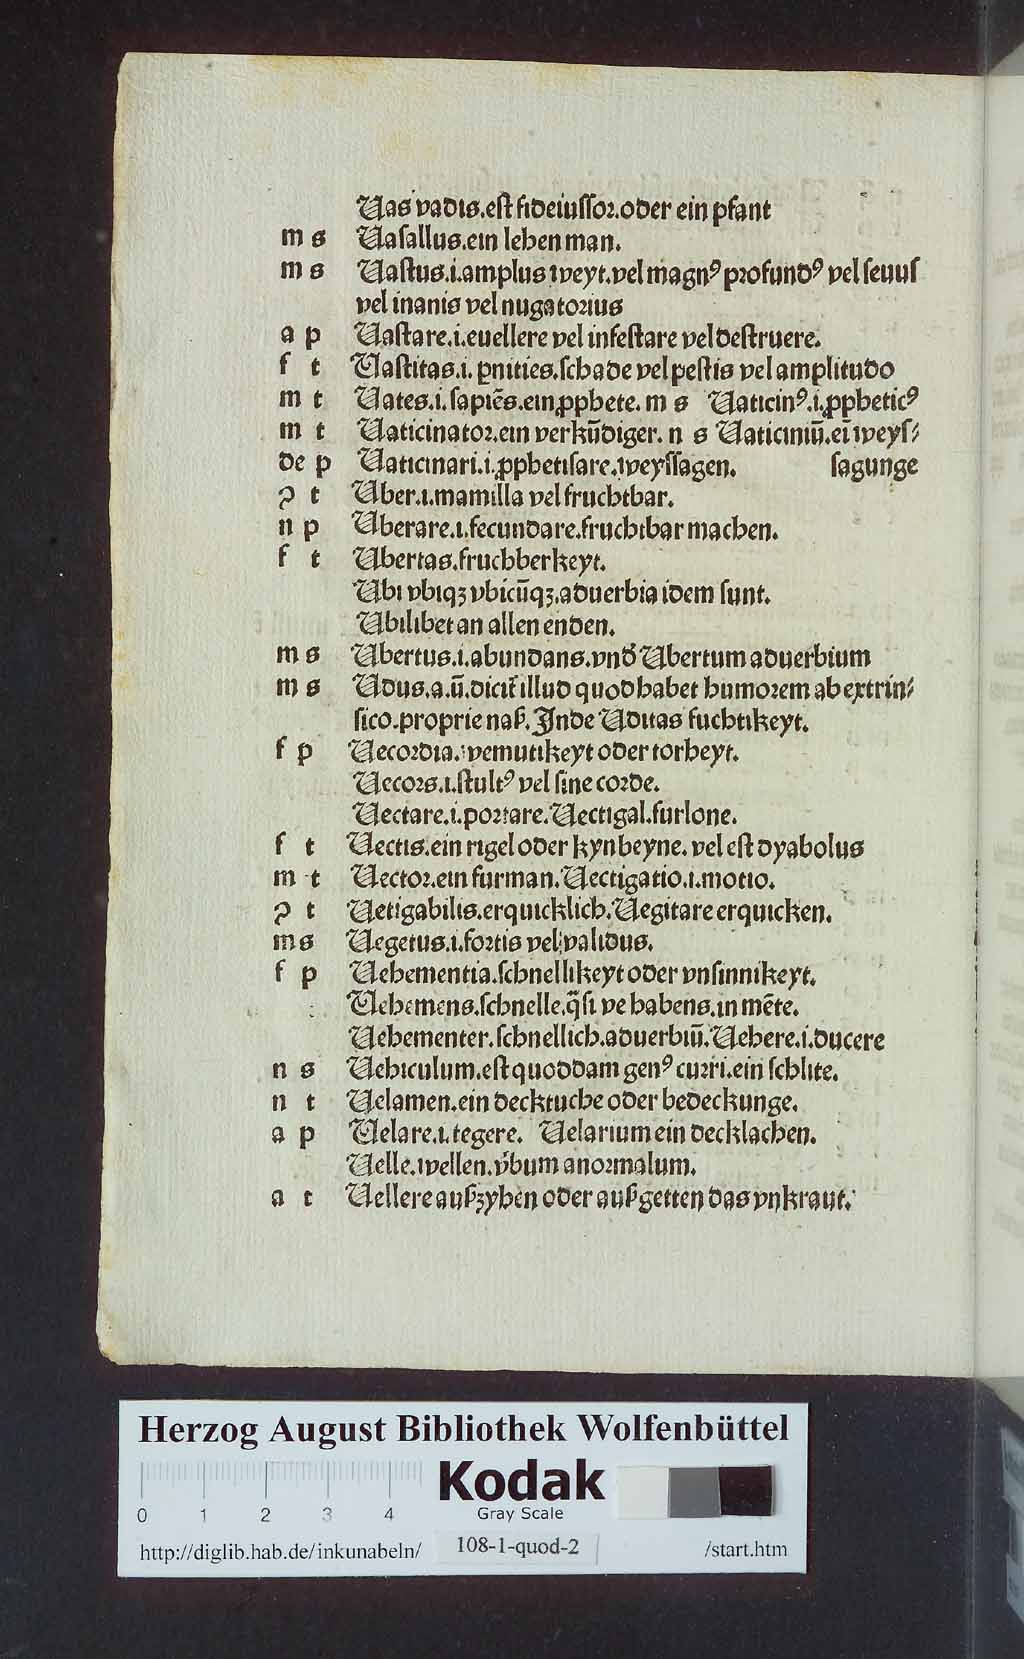 Uas vadis.est fideiussor.oder ein pfant
m s Uasallus.ein lehen man.
m s Uastus.i.amplus weyt.vel magnꝰ profundꝰ vel seuus
vel inanis vel nugatorius
a p Uastare.i.euellere vel infestare vel destruere.
f t Uastitas.i. ꝑnities.schade vel pestis vel amplitudo
m t Uates.i.sapiēs.ein ꝓphete. m s Uaticinꝰ.i.ꝓpheticꝰ
m t Uaticinator.ein verkūdiger. n s Uaticiniū.eī weys⸗
de p Uaticinari.i.ꝓphetisare.weyssagen. sagunge
ꝯ t Uber.i.mamilla vel fruchtbar.
n p Uberare.i.fecundare.fruchtbar machen.
f t Ubertas.fruchberkeyt.
Ubi vbiqꝫ vbicūqꝫ.aduerbia idem sunt.
Ubilibet an allen enden.
m s Ubertus.i.abundans.vnd̕ Ubertum aduerbium
m s Udus.a.ū.dicit̕ illud quod habet humorem ab extrin⸗
sico.proprie naß.Inde Uditas fuchtikeyt.
f p Uecordia.vemutikeyt oder torheyt.
Uecors.i.stultꝰ vel sine corde.
Uectare.i.portare.Uectigal.furlone.
f t Uectis.ein rigel oder kynbeyne.vel est dyabolus
m t Uector.ein furman.Uectigatio.i.motio.
ꝯ t Uetigabilis.erquicklich.Uegitare erquicken.
m s Uegetus.i.fortis vel validus.
f p Uehementia.schnellikeyt oder vnsinnikeyt.
Uehemens.schnelle.q̄si ve habens.in mēte.
Uehementer.schnellich.aduerbiū.Uehere.i.ducere
n s Uehiculum.est quoddam genꝰ curri.ein schlite.
n t Uelamen.ein decktuche oder bedeckunge.
a p Uelare.i.tegere. Uelarium ein decklachen.
Uelle.wellen.v̕bum anormalum.
a t Uellere außzyhen oder außgetten das vnkraut.
Herzog August Bibliothek Wolfenbüttel
Kodak
Gray Scale
0 1 2 3 4
http://diglib.hab.de/inkunabeln/ 108-1-quod-2 /start.htm